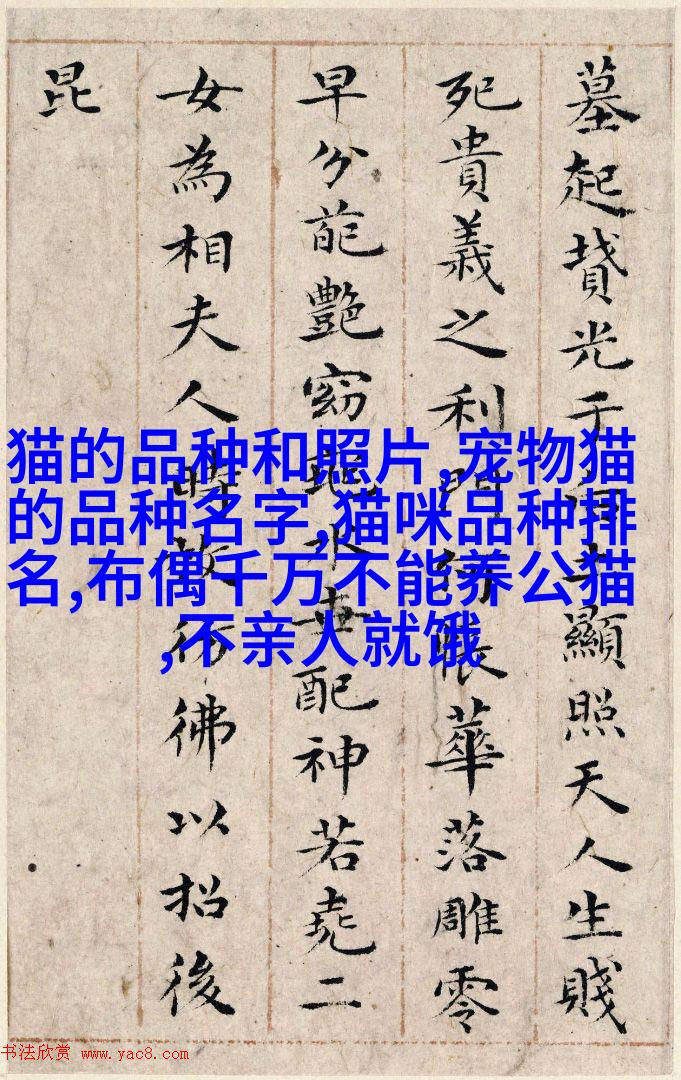 墓起光于顯照天人生賤
死貴義之利門帳華落雕零
早兮葩艷窈水配神若堯二
女為相夫人彷彿以招後
昆
猫的品种和照片,宠物猫
的品种名字,猫咪品种排
名,布偶千万不能养公猫
,不亲人就饿
书法欣赏 www.yac8.com